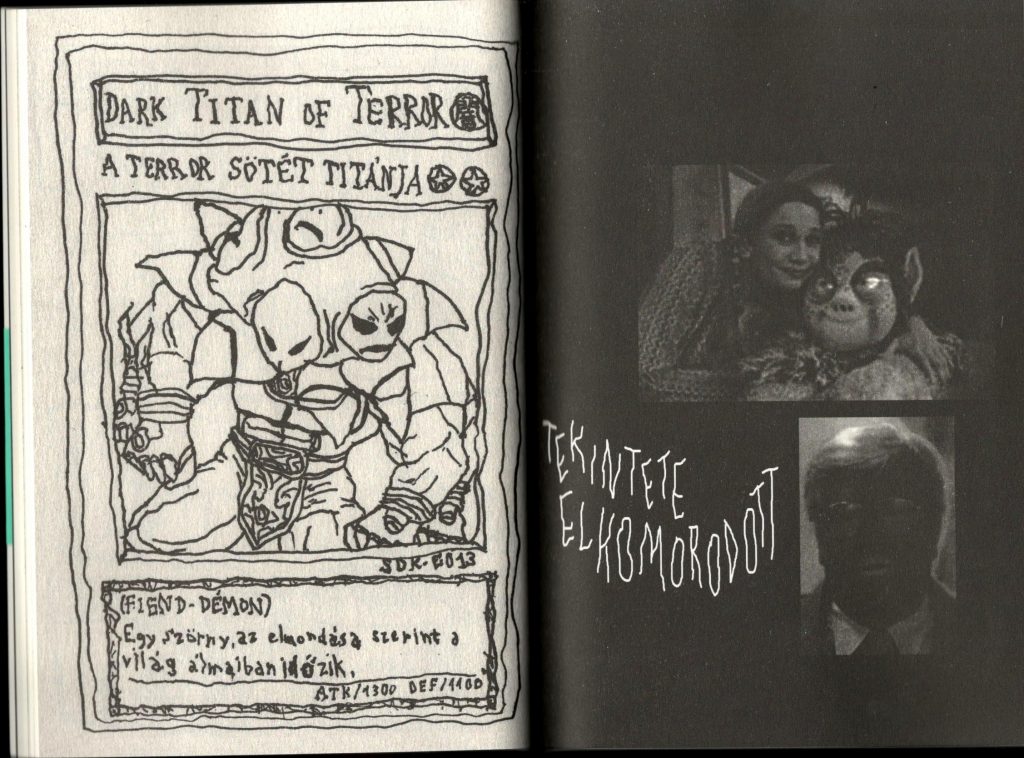 DARK TITAN OF TERROR 闇
A TERROR SÖTÉT TITÁNJA
SDK-E013
(FIEND-DÉMON)
Egy szörny, az elmondása szerint a
világ álmaiban időzik.
ATK/1300 DEF/1100
TEKINTETE
ELKOMORODOTT